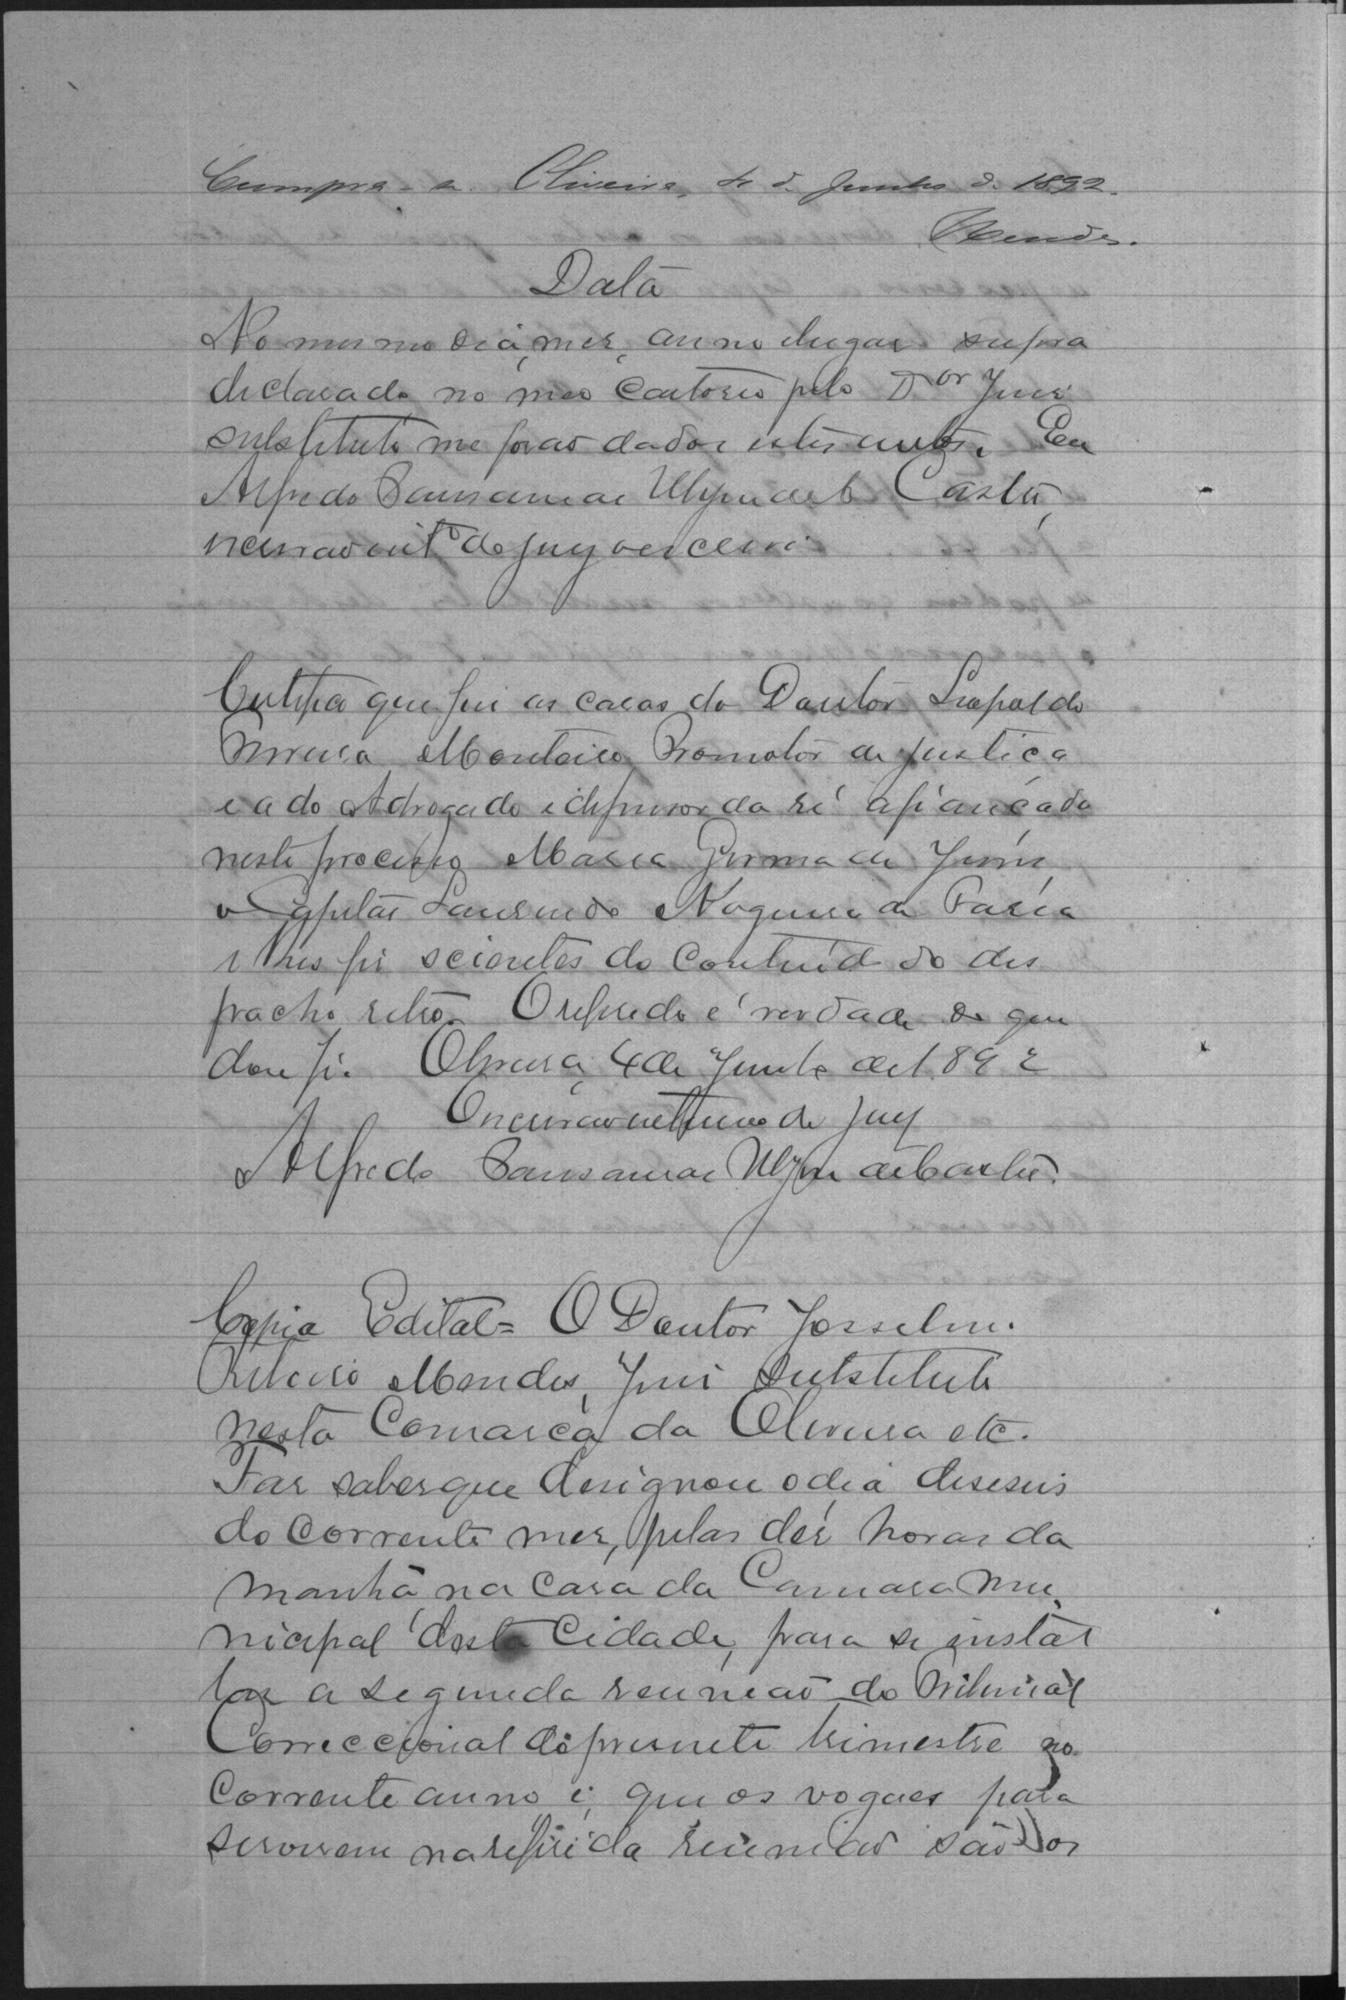 Cumpra-se. Oliveira, 4 de Junho de 1892.
Mendes.
Data
No mesmo dia, mez, anno e lugar supra
declarado no meo Cartorio pelo Dor Juis
substituto me forão dados estes autos. Eu
Alfredo de Castro,
escrevente de Jury o escrevi
Certifico que fui as casas do Doutor Leopoldo
Correia Monteiro, Promotor de Justica
e a do Advogado e defensor da ré afiancada
neste processo Maria de Jesus,
o Capitão Laurindo Nogueira de Faria
e lhes fis scientes do contheudo do des
pacho retro. O referido é verdade do que
dou fé. Oliveira, 4 de Junho de 1892
O escrevente do Jury
Alfredo de Castro.
Copia Edital = O Doutor Josselino
Ribeiro Mendes, Juis Substituto
nesta Comarca da Oliveira etc.
Fas saber que designou o dia deseseis
do corrente mez, pelas dez horas da
manhã na Casa da Camara Mu
nicipal desta Cidade, para se instal
lar a segunda reunião do Tribunal
Correccional do presente trimestre no
corrente anno e, que os vogaes para
servirem na referida reunião são os